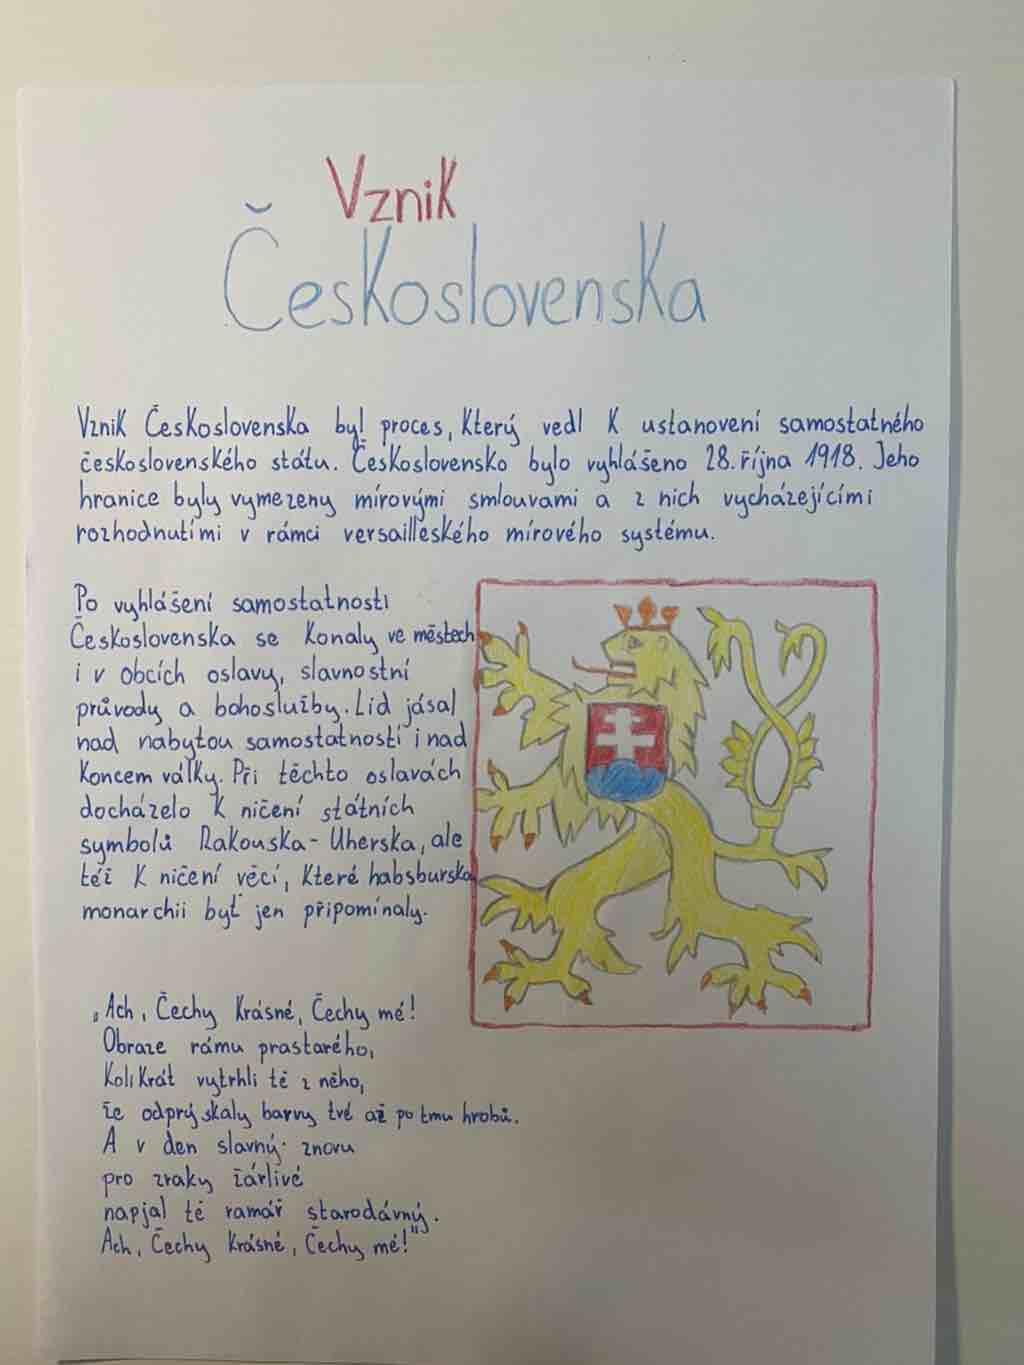 Vznik
Československa
Vznik Československa byl proces, který vedl k ustanovení samostatného
československého státu. Československo bylo vyhlášeno 28. října 1918. Jeho
hranice byly vymezeny mírovými smlouvami a z nich vycházejícími
rozhodnutími v rámci versailleského mírového systému.
Po vyhlášení samostatnosti
Československa se konaly ve městech
i v obcích oslavy, slavnostní
průvody a bohoslužby. Lid jásal
nad nabytou samostatností i nad
koncem války. Při těchto oslavách
docházelo k ničení státních
symbolů Rakouska-Uherska, ale
též k ničení věcí, které habsburskou
monarchii byť jen připomínaly.
„Ach, Čechy krásné, Čechy mé!
Obraze rámu prastarého,
kolikrát vytrhli tě z něho,
že odprýskaly barvy tvé až po tmu hrobů.
A v den slavný znovu
pro zraky žárlivé
napjal tě ramář starodávný.
Ach, Čechy krásné, Čechy mé!"